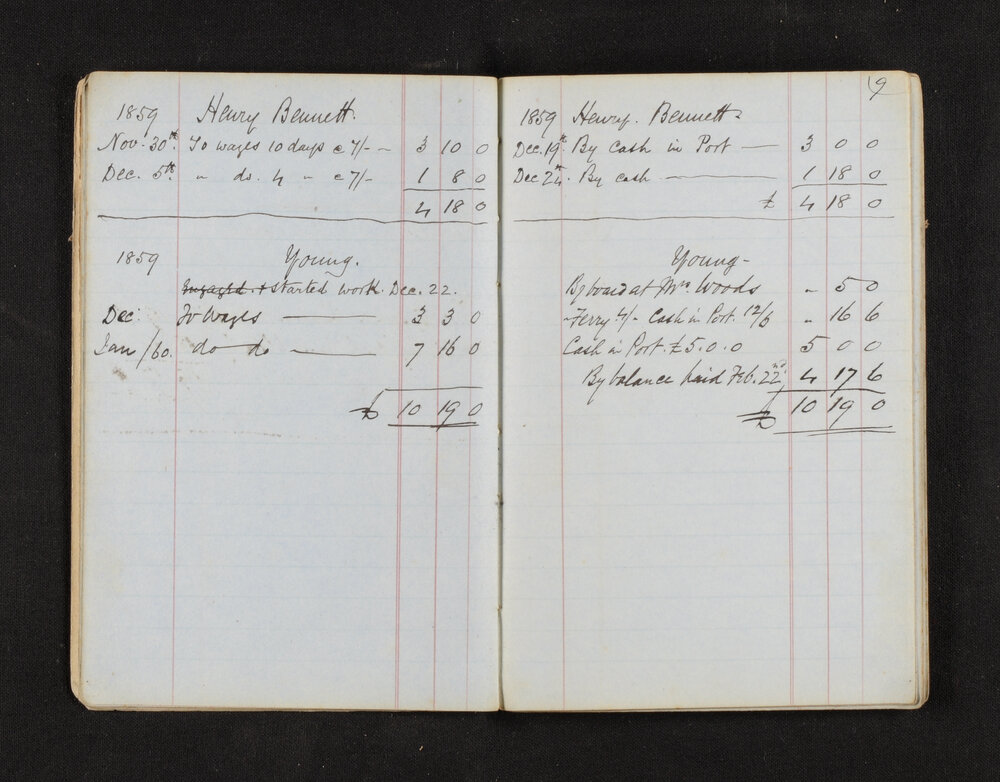 1859 Henry Bennett.
Nov. 30th. To wages 10 days @ 7/- " 3 10 0
Dec. 5th. " do. 4 " @ 7/- 1 8 0
4 18 0
1859 Young.
Engaged & started work Dec. 22.
Dec. To Wages 3 3 0
Jan /60. do do 7 16 0
£ 10 19 0
9
1859 Henry. Bennett
Dec. 19th. By cash in Port 3 0 0
Dec 24. By cash 1 18 0
£ 4 18 0
Young
By board at Mrs Woods " 5 0
Ferry 4/- Cash in Port. 12/6 " 16 6
Cash in Port. £5.0.0 5 0 0
By balance paid Feb. 22nd 4 17 6
£ 10 19 0